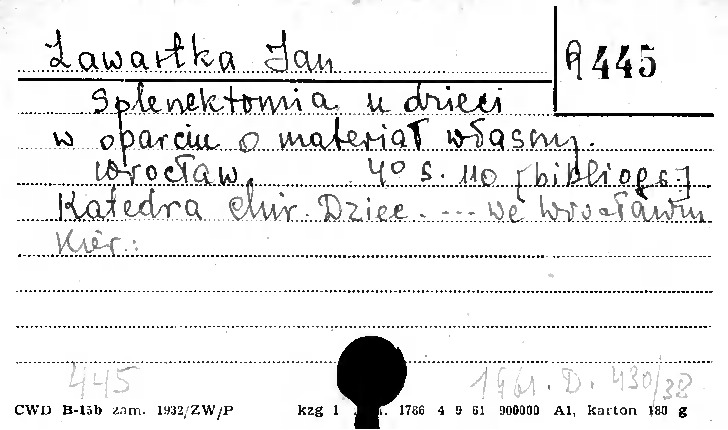 Zawartka Jan
A 445
Splenektomia u dzieci
w oparciu o materiał własny.
Wrocław 40 s. 110 [bibliogr.]
Katedra Chir. Dziec. --- we Wrocławiu
Kier.:
445
1961. D. 430/38
CWD B-15b zam. 1932/ZW/P kzg 1 1786 4 9 61 900000 A1, karton 180 g